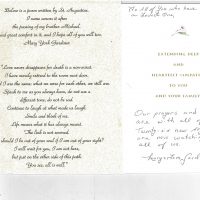 Below is a poem written by St. Augustine.
I came across it after
the passing of my brother Michael.
great comfort in it, and I hope all of you will too.
Mary York Gardner
"Love never disappears for death is a non-event.
I have merely retired to the room next door.
I am the same; what we were for each other, we still are.
Speak to me as you always have, do not use a
different tone, do not be sad.
Continue to laugh at what made us laugh.
Smile and think of me.
Life means what it has always meant.
The link is not severed.
Should I be out of your soul if I am out of your sight?
I will wait for you, I am not here,
but just on the other side of this path.
You see, all is well."
To All of You who have
EXTENDING DEEP
AND
HEARTFELT SYMPATHY
TO YOU
AND YOUR FAMILY
Our prayers and
are with all of
now watching
all of us.